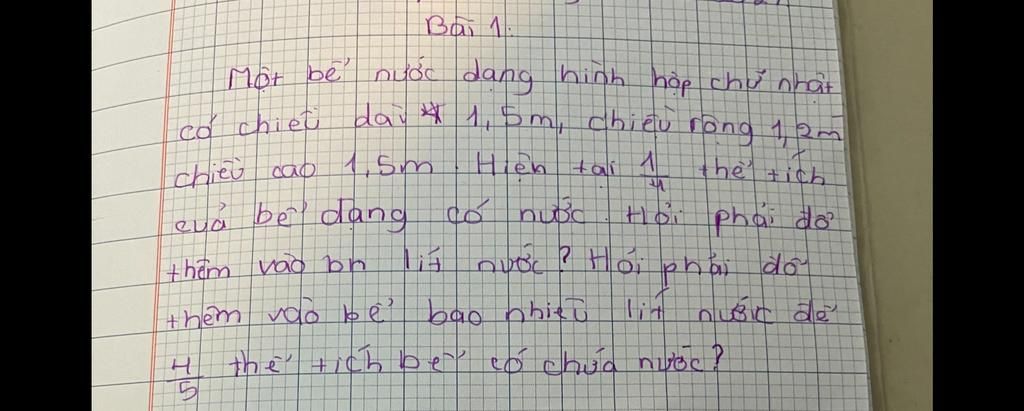 Bài 1:
Một bể nước dạng hình hộp chữ nhật
có chiều dài 1,5m, chiều rộng 1,2m
chiều cao 1,5m. Hiện tại 1/4 thể tích
của bể đang có nước. Hỏi phải đổ
thêm vào bn lít nước? Hỏi phải đổ
thêm vào bể bao nhiêu lít nước để
4/5 thể tích bể có chứa nước?